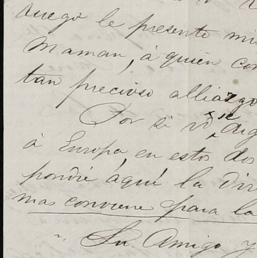 ruego le presente mi
Maman, á quien con
tan precioso
Por si
á Europa en estos dos
pondré aquí la dir
mas conviene para la
Su Amigo y